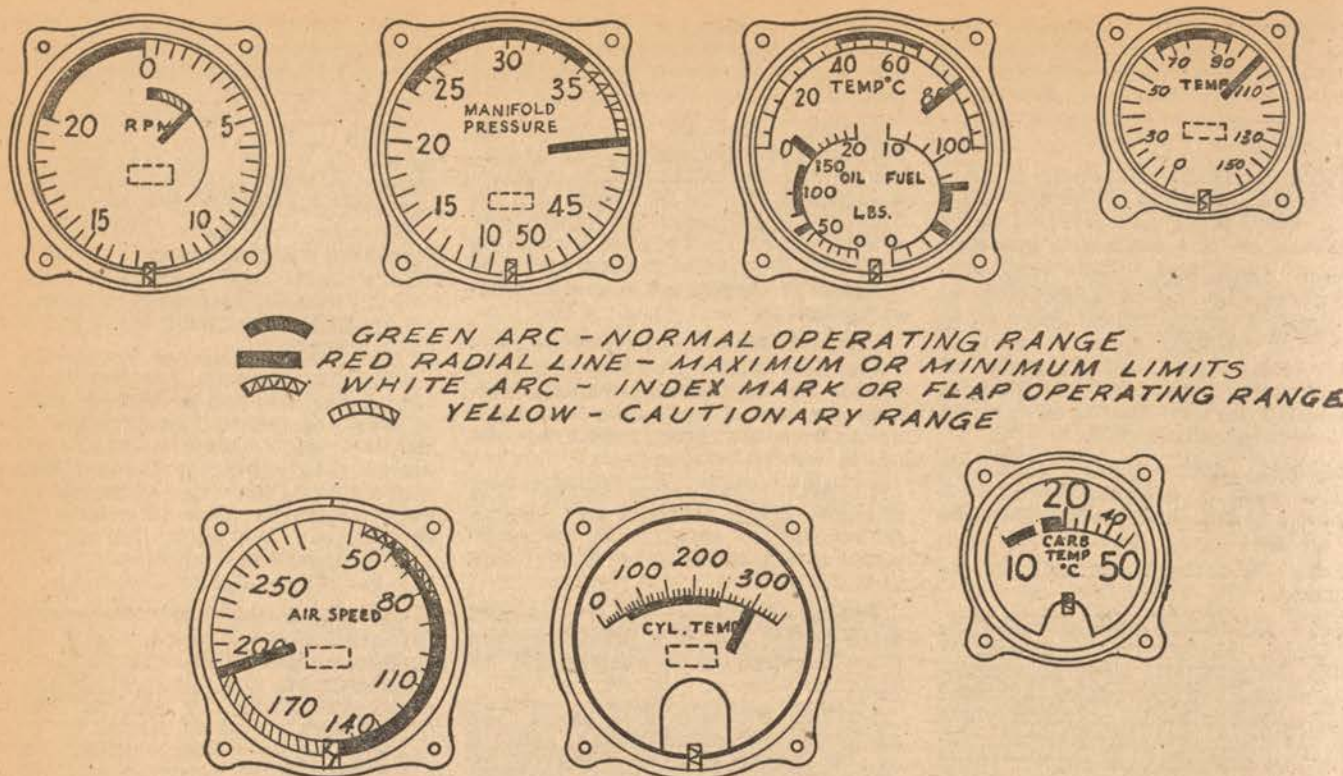 0
5
10
15
20
RPM
10
15
20
25
30
35
45
50
MANIFOLD
PRESSURE
0
20
40
60
80
100
TEMP°C
20
150
100
50
0
OIL
10
0
FUEL
LBS.
0
30
50
70
90
110
130
150
TEMP
GREEN ARC - NORMAL OPERATING RANGE
RED RADIAL LINE - MAXIMUM OR MINIMUM LIMITS
WHITE ARC - INDEX MARK OR FLAP OPERATING RANGE
YELLOW - CAUTIONARY RANGE
50
80
110
140
170
200
250
AIR SPEED
0
100
200
300
CYL. TEMP
10
20
40
50
CARB
TEMP
°C